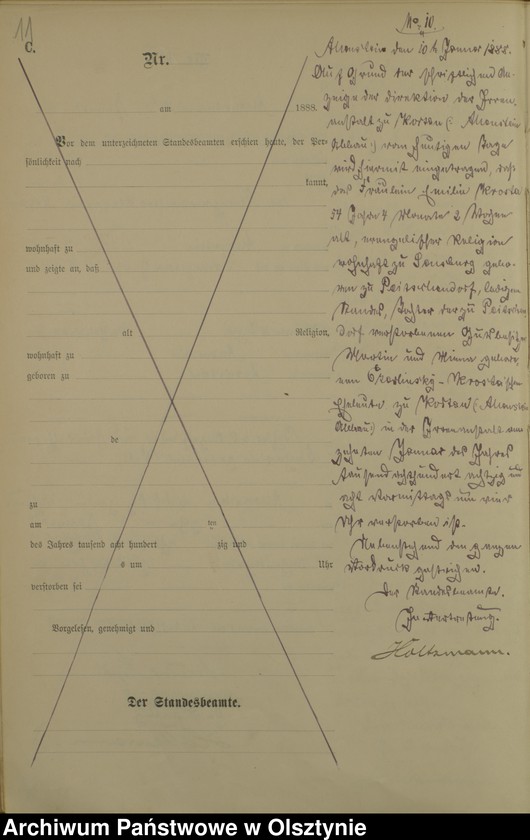 11
C.
Nr.
am 1888.
Vor dem unterzeichneten Standesbeamten erschien heute, der Per-
sönlichkeit nach
kannt,
wohnhaft zu
und zeigte an, daß
alt Religion,
wohnhaft zu
geboren zu
de
zu
am ten
des Jahres tausend acht hundert zig und
s um Uhr
verstorben sei
Vorgelesen, genehmigt und
Der Standesbeamte.
No. 10.
Allenstein den 10t Januar 1888.
Auf Grund der schriftlichen An-
zeige der Direktion der Irren-
anstalt zu Kortau (: Allenstein
Abbau:) vom heutigen Tage
wird hiermit eingetragen, daß
das Fräulein Emilie
54 Jahre 4 Monate 2 Wochen
alt, evangelischer Religion
wohnhaft zu Sensburg gebo-
ren zu Peitschendorf, ledigen
Standes, Tochter der zu Peitschen
dorf verstorbenen Gutsbesitzer
Martin und Mina gebore-
nen
Eheleute zu Kortau (: Allenstein
Abbau:) in der Irrenanstalt am
zehnten Januar des Jahres
tausend achthundert achtzig und
acht Vormittags um vier
Uhr verstorben ist.
Nebenstehend den ganzen
Vordruck gestrichen.
Der Standesbeamte.
In Vertretung.
Holtzmann.
Archiwum Państwowe w Olsztynie